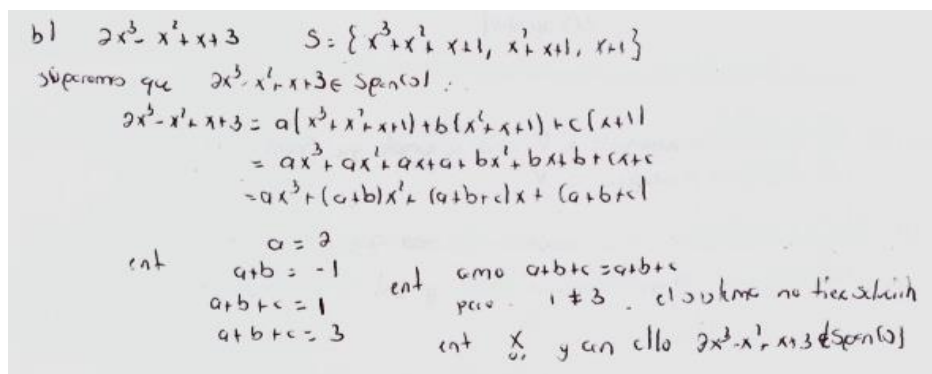 b) 2x³-x²+x+3 S={x³+x²+x+1, x²+x+1, x+1}
superemos que 2x³-x²+x+3∈ Span(S).
2x³-x²+x+3=a(x³+x²+x+1)+b(x²+x+1)+c(x+1)
=ax³+ax²+ax+a+bx²+bx+b+cx+c
=ax³+(a+b)x²+(a+b+c)x+(a+b+c)
ent a=2
a+b=-1
a+b+c=1
a+b+c=3
ent como a+b+c=a+b+c
pero 1≠3. el no
ent y con ello 2x³-x²+x+3∉Span(S)